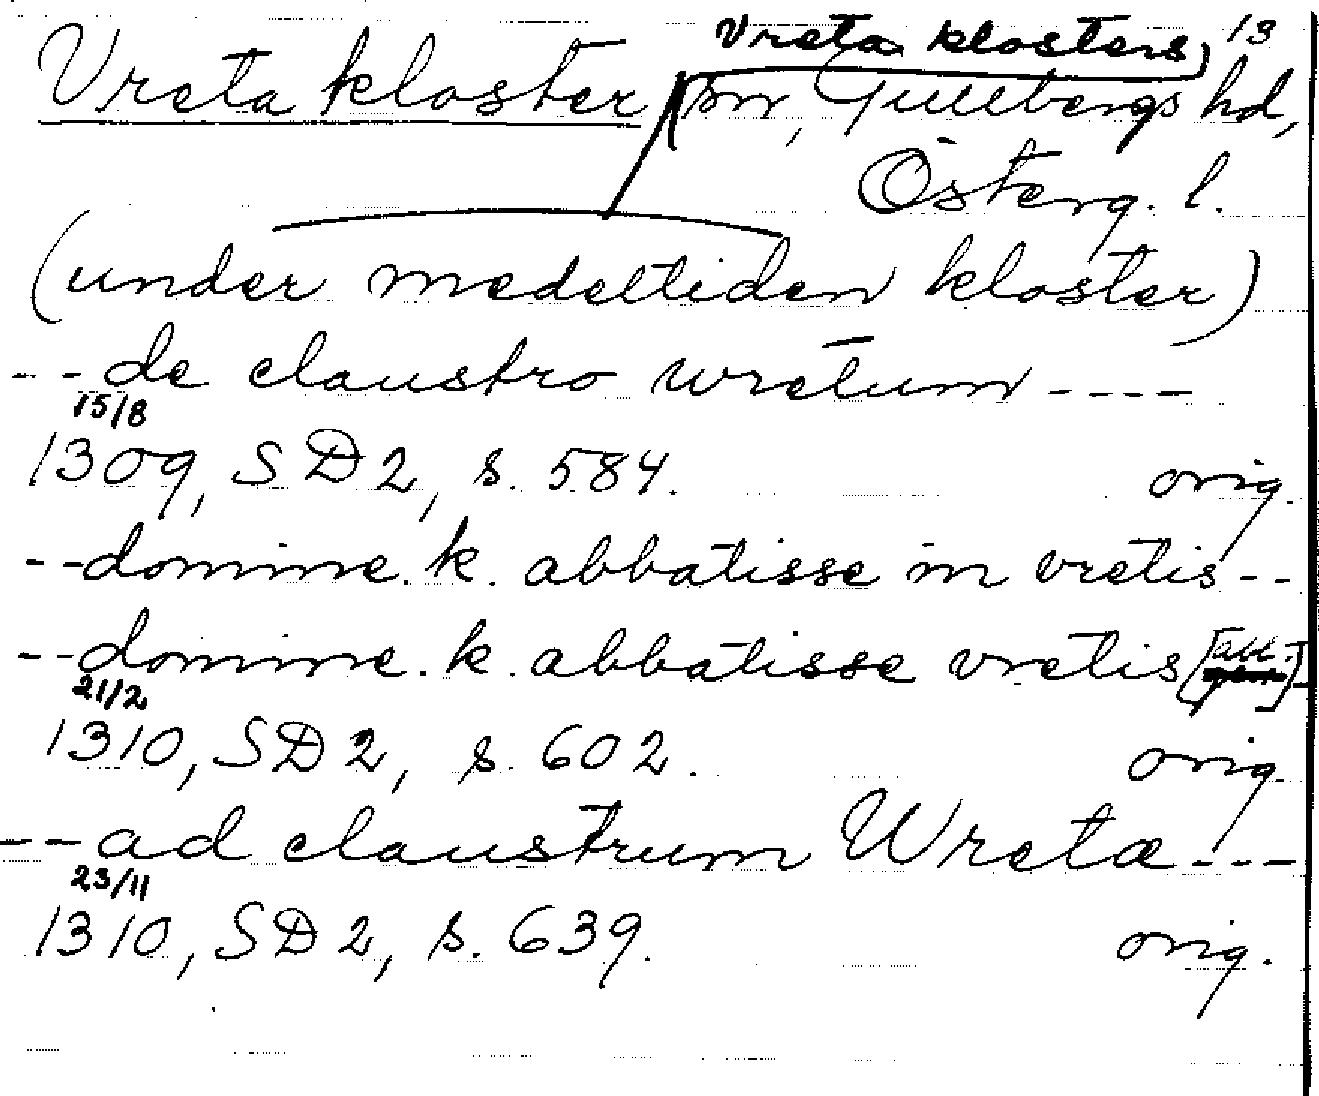 Vreta klosters) 13
Vreta kloster (sn, Gullbergs hd,
Österg. l.
(under medeltiden kloster)
-- de claustro wretum ----
15/8
1309, SD 2, s. 584. orig.
-- domine. k. abbatisse in vretis --
-- domine. k abbatisse vretis [abl.]
21/2
1310, SD 2, s. 602. orig.
-- ad claustrum Wretæ ---
23/11
1310, SD 2, s. 639. orig.